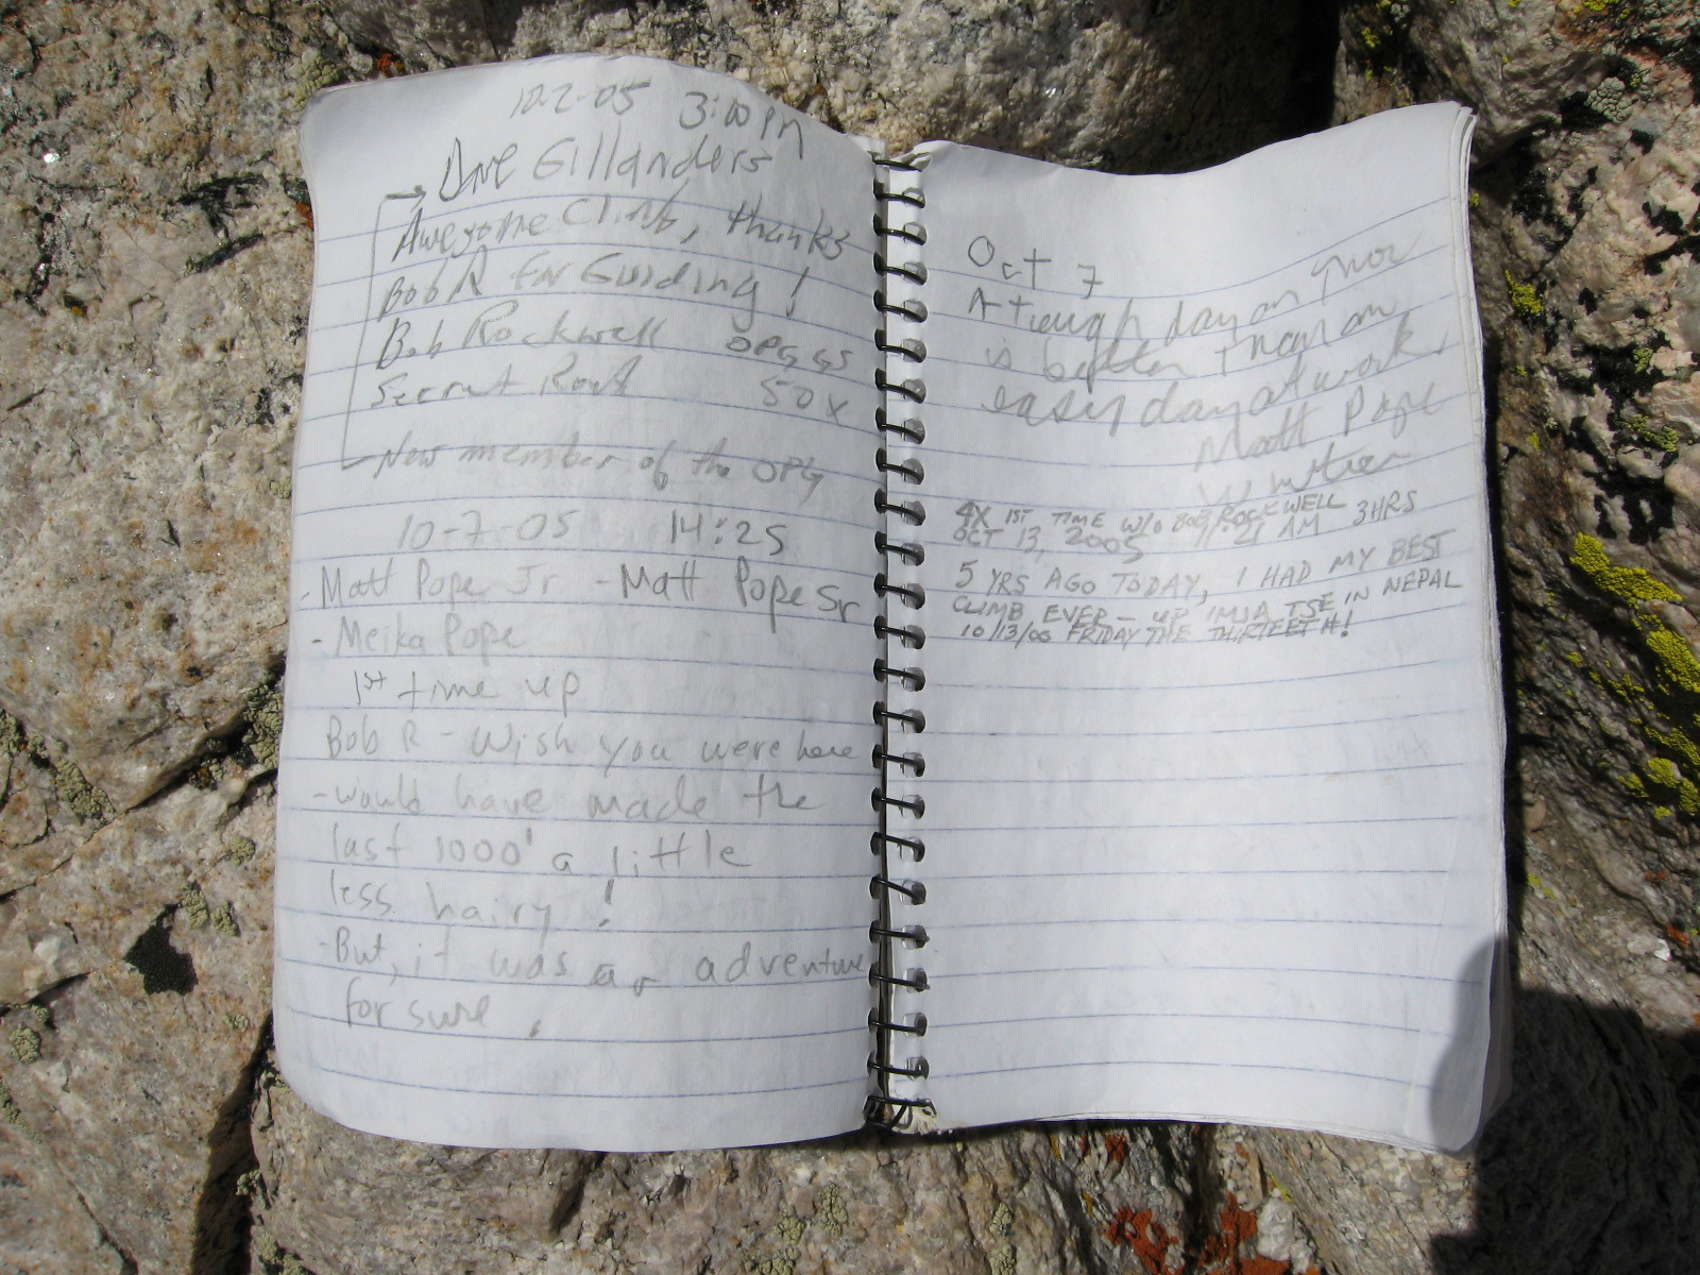 10-2-05 3:10 PM
Dave Gillanders
Awesome Climb, thanks
Bob R for Guiding!
Bob Rockwell OPG
Secret Rout 50x
New member of the OPG
10-7-05 14:25
- Matt Pope Jr - Matt Pope Sr
- Meika Pope
1st time up
Bob R - Wish you were here
- would have made the
last 1000' a little
less hairy!
- But, it was an adventure
for sure.
Oct 7
A tough day on
is better than an
easy day at work.
Matt Pope
4X 1ST TIME W/O BOB ROCKWELL
OCT 13, 2005 11:21 AM 3HRS
5 YRS AGO TODAY, I HAD MY BEST
CLIMB EVER - UP IMJA TSE IN NEPAL
10/13/00 FRIDAY THE THIRTEETH!